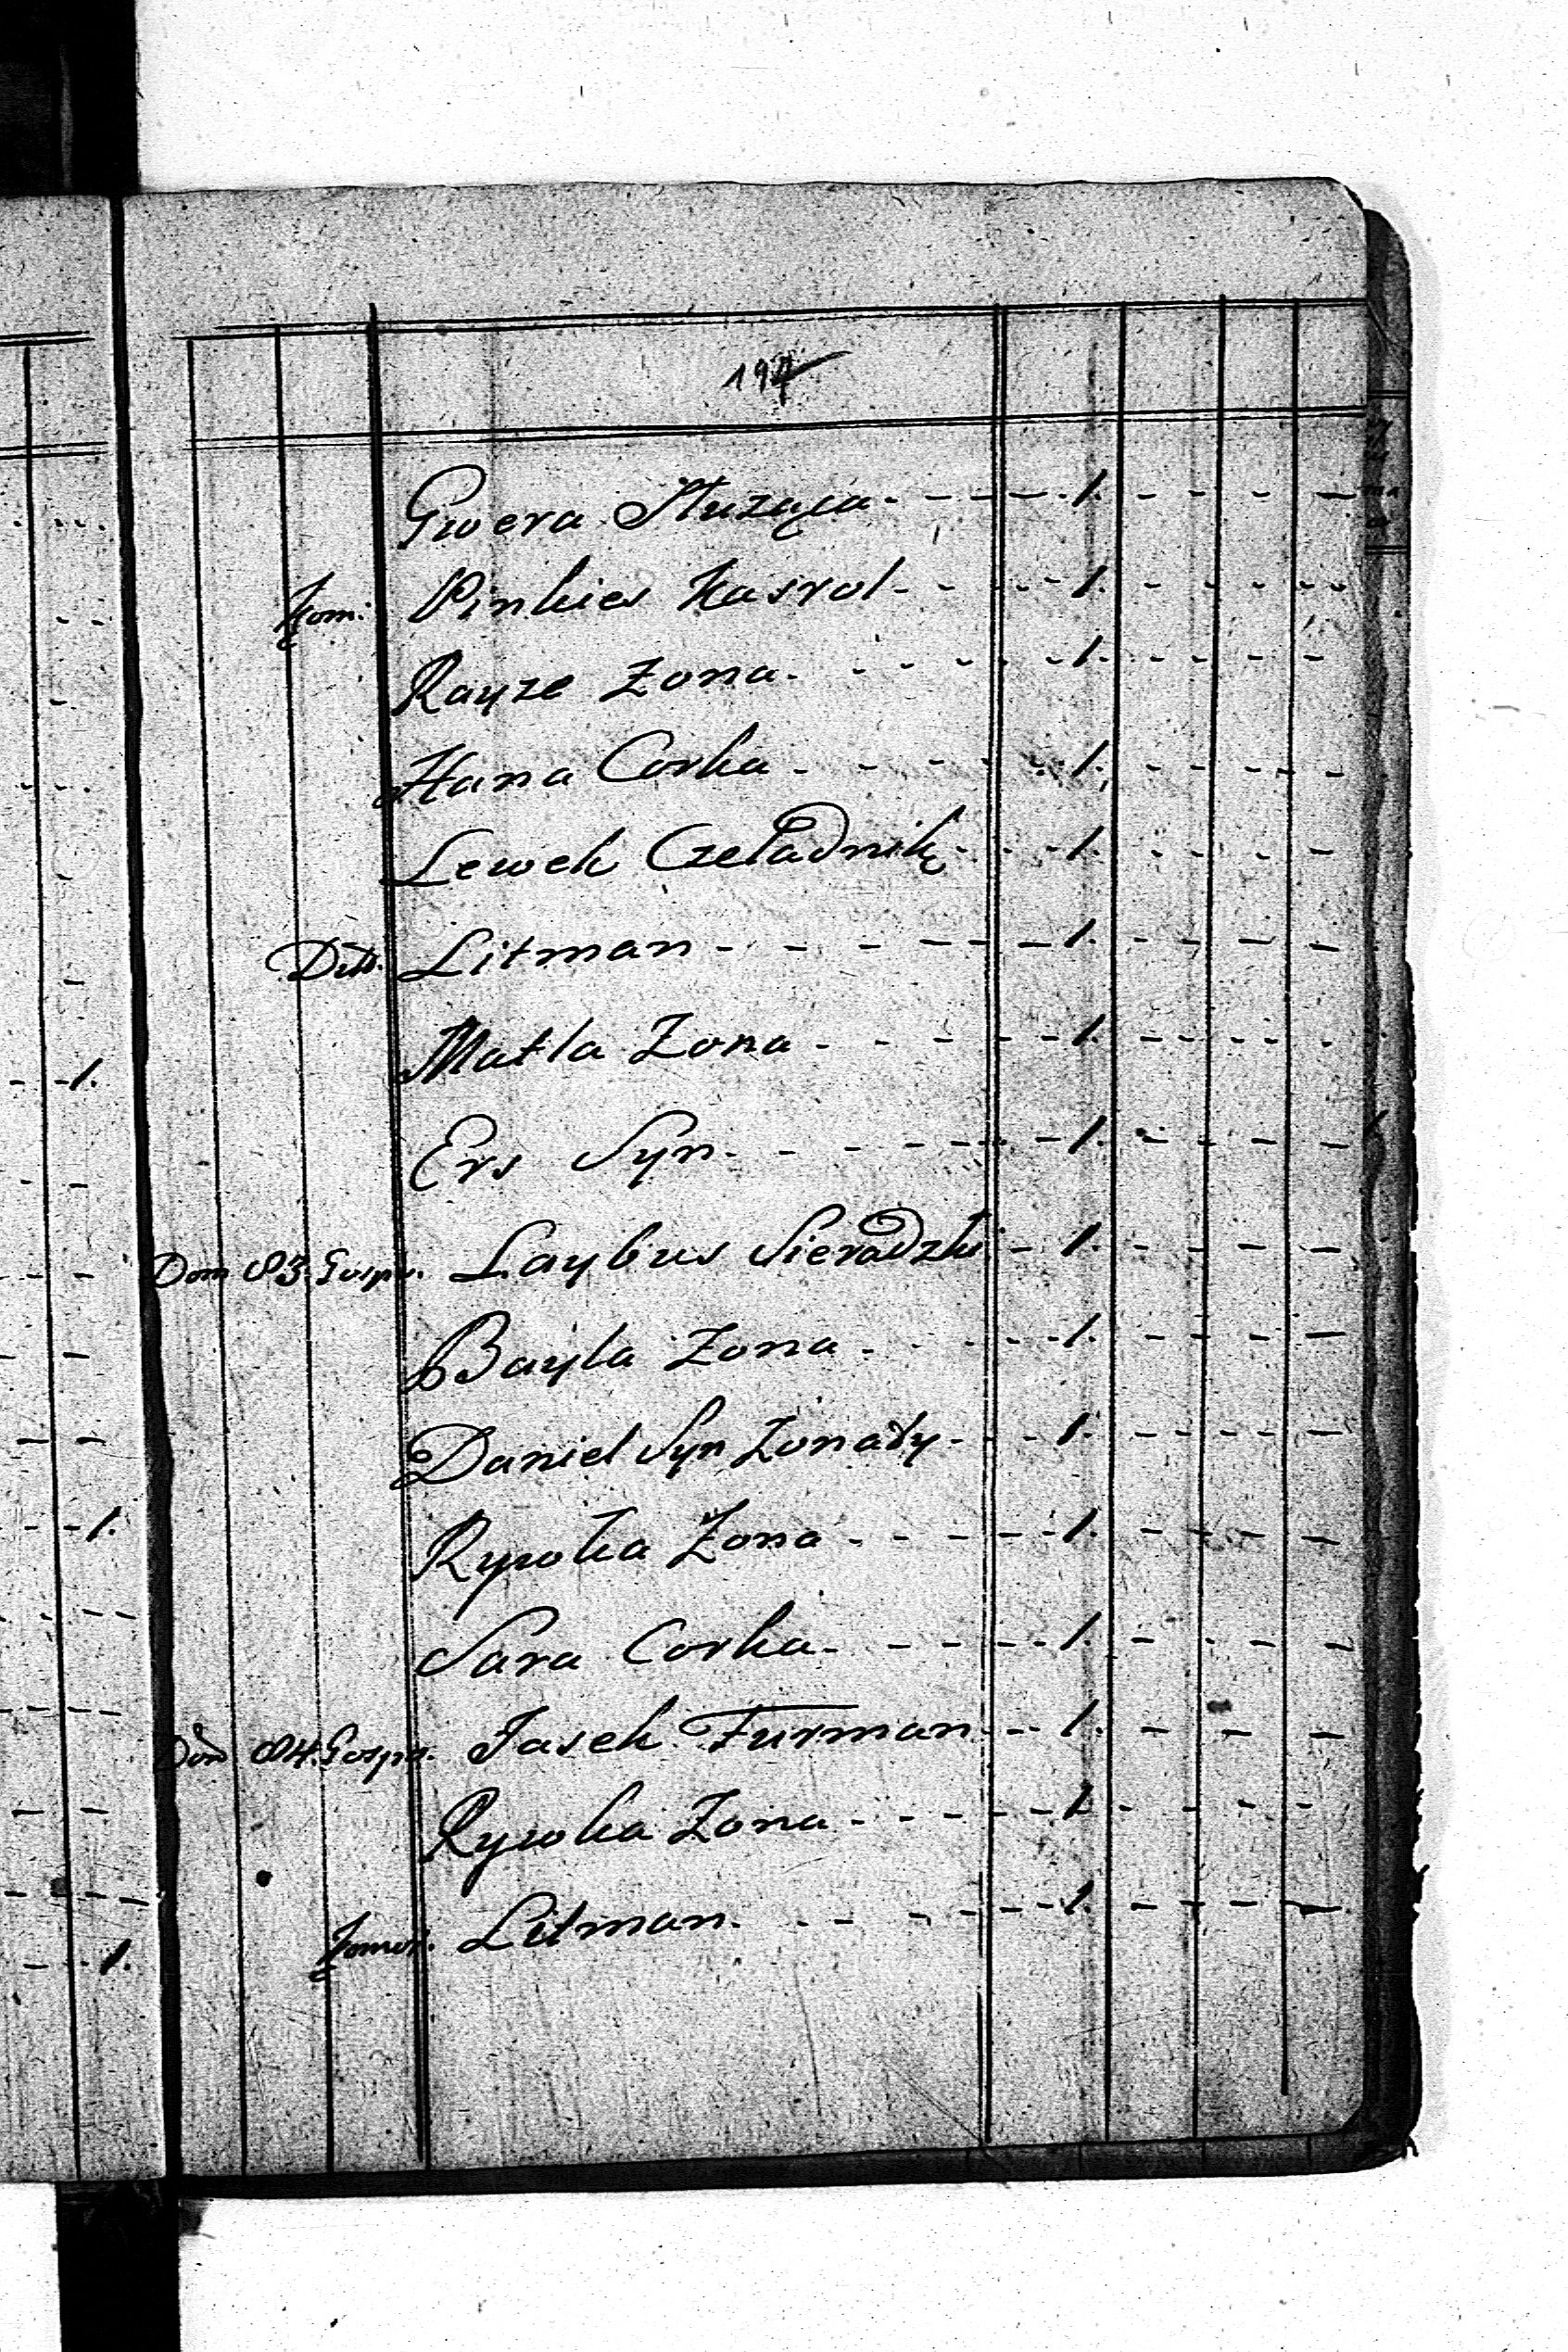 194
Gwera Słuząca - - - - 1. - - - - -
Kom: Pinkies Kasrol - - - - 1. - - - - -
Rayze Zona - - - - 1. - - - - -
Hana Corka - - - - 1. - - - - -
Lewek Czeladnik - - - 1. - - - - -
Ditto. Litman - - - - - 1. - - - - -
Matla Zona - - - - - 1. - - - - -
Ers Syn - - - - - 1. - - - - -
Dom 83. Gospo. Laybus Sieradzki - 1. - - - - -
Bayla Zona - - - - 1. - - - - -
Daniel Syn Zonaty - - - 1. - - - - -
Rywka Zona - - - - 1. - - - - -
Sara Corka - - - - 1. - - - -
Dom 84. Gospo. Jasek Furman - - 1. - - -
Rywka Zona - - - - - 1. - - - - -
Komor. Litman - - - - - 1. - - - -
1.
1.
1.